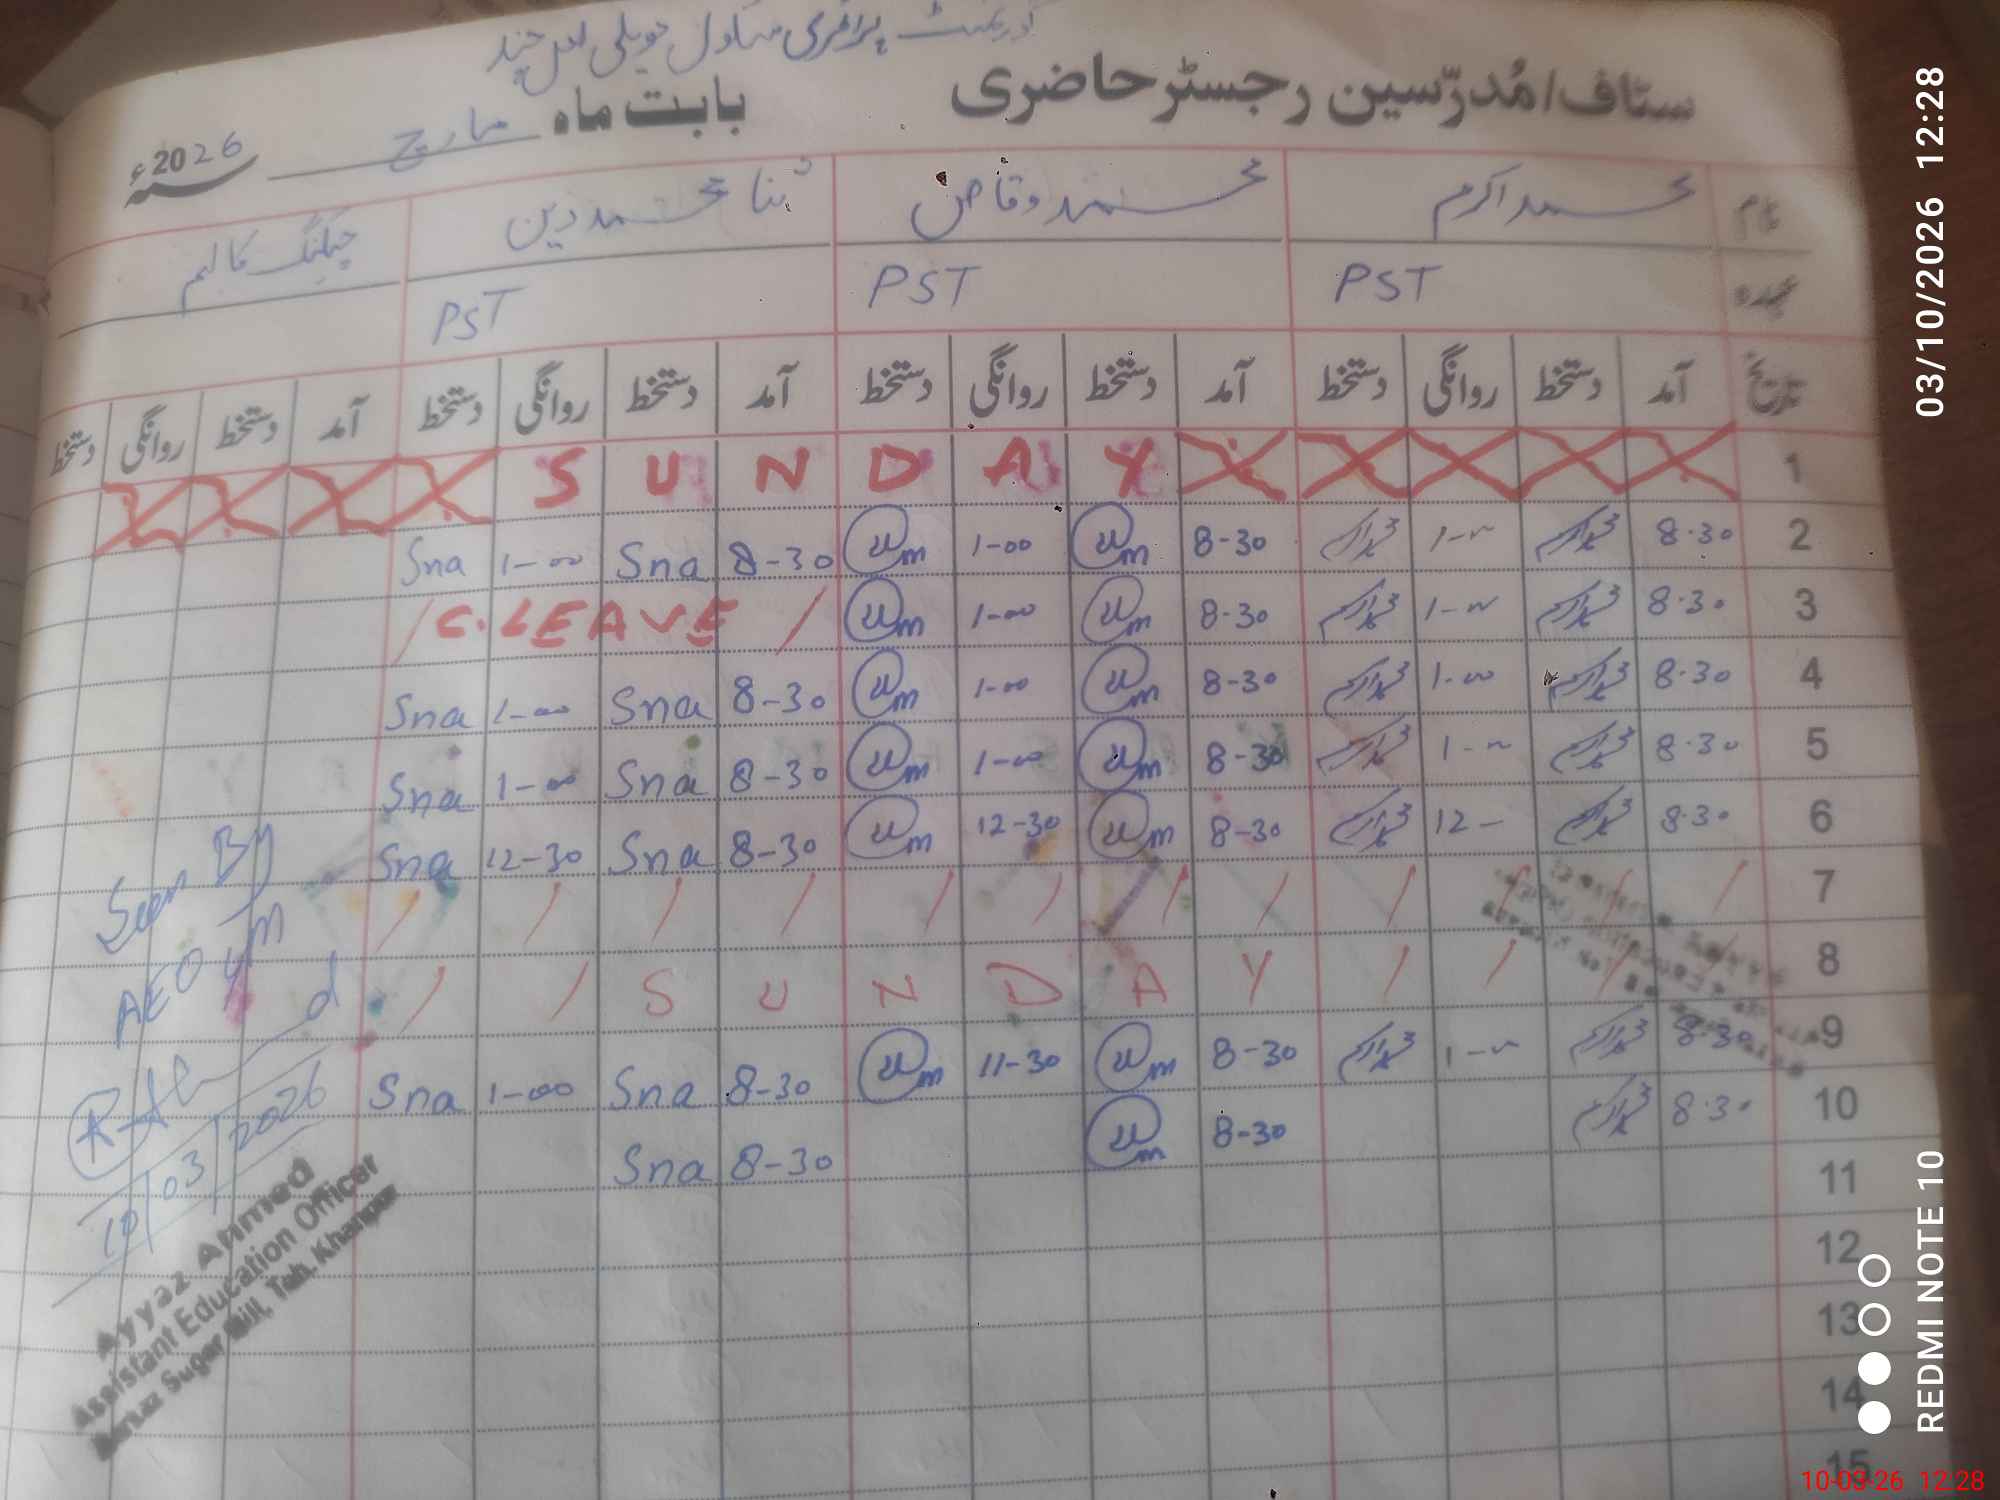 گورنمنٹ پرائمری سکول حویلی لعل چند
سٹاف/مُدرّسین رجسٹر حاضری بابت ماہ مارچ سنہ 2026ء
نام محمد اکرم محمد وقاص ثنا محمد دین چیکنگ کالم
عہدہ PST PST PST
تاریخ آمد دستخط روانگی دستخط آمد دستخط روانگی دستخط آمد دستخط روانگی دستخط آمد دستخط روانگی دستخط
1 S U N D A Y
2 8.30 محمد اکرم 1- محمد اکرم 8-30 1-00 8-30 Sna 1-00 Sna
3 8.30 محمد اکرم 1- محمد اکرم 8-30 1-00 / C.LEAVE /
4 8.30 محمد اکرم 1-00 محمد اکرم 8-30 1-00 8-30 Sna 1-00 Sna
5 8.30 محمد اکرم 1- محمد اکرم 8-30 1-00 8-30 Sna 1-00 Sna
6 8.30 محمد اکرم 12- محمد اکرم 8-30 12-30 8-30 Sna 12-30 Sna
7 / / / / / / / / / / / /
8 / / / / S U N D A Y / /
9 8-30 محمد اکرم 1- محمد اکرم 8-30 11-30 8-30 Sna 1-00 Sna
10 8.30 محمد اکرم 8-30 8-30 Sna
11
12
13
14
15
Seen By
AEO
10/03/2026
Ayyaz Ahmed
Assistant Education Officer
Sugar Mill, Teh. Khanpur
03/10/2026 12:28
REDMI NOTE 10
10-03-26 12:28